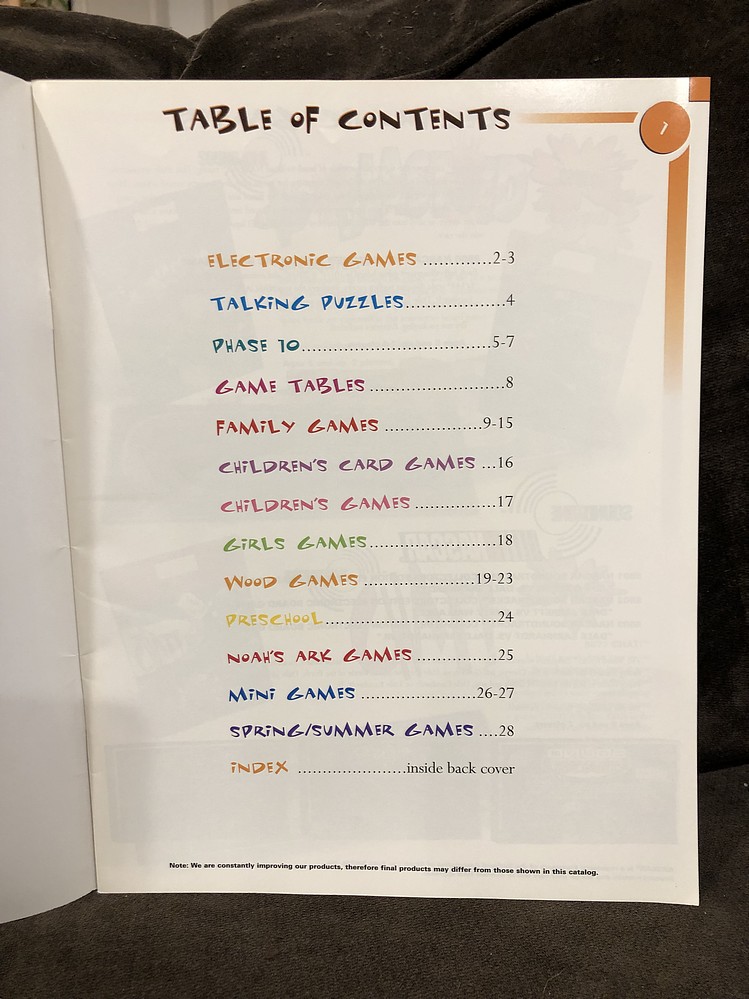 TABLE OF CONTENTS
1
ELECTRONIC GAMES .............2-3
TALKING PUZZLES...................4
PHASE 10....................................5-7
GAME TABLES ..........................8
FAMILY GAMES ...................9-15
CHILDREN'S CARD GAMES ...16
CHILDREN'S GAMES ................17
GIRLS GAMES.........................18
WOOD GAMES .....................19-23
PRESCHOOL.................................24
NOAH'S ARK GAMES ................25
MINI GAMES ......................26-27
SPRING/SUMMER GAMES ....28
INDEX ......................inside back cover
Note: We are constantly improving our products, therefore final products may differ from those shown in this catalog.